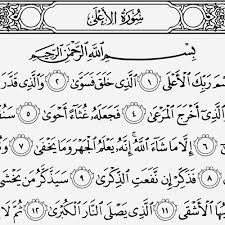 سُورَةُ الأَعْلَى
بِسْمِ ٱللَّهِ ٱلرَّحْمَٰنِ ٱلرَّحِيمِ
سْمَ رَبِّكَ ٱلْأَعْلَى ١ ٱلَّذِى خَلَقَ فَسَوَّىٰ ٢ وَٱلَّذِى قَدَّرَ
ٱلَّذِىٓ أَخْرَجَ ٱلْمَرْعَىٰ ٤ فَجَعَلَهُۥ غُثَآءً أَحْوَىٰ ٥
٦ إِلَّا مَا شَآءَ ٱللَّهُ إِنَّهُۥ يَعْلَمُ ٱلْجَهْرَ وَمَا يَخْفَىٰ ٧
٨ فَذَكِّرْ إِن نَّفَعَتِ ٱلذِّكْرَىٰ ٩ سَيَذَّكَّرُ مَن يَخْشَىٰ
ٱلْأَشْقَى ١١ ٱلَّذِى يَصْلَى ٱلنَّارَ ٱلْكُبْرَىٰ ١٢ ثُمَّ لَا